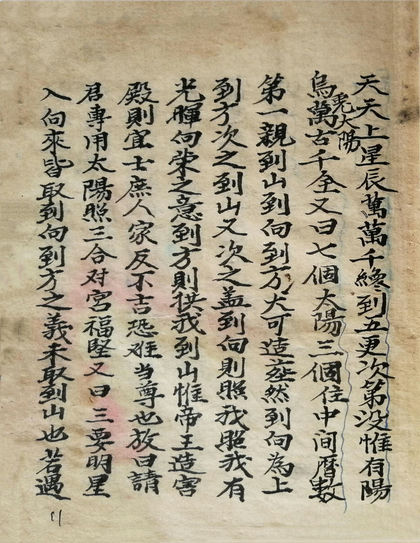 天天上星辰萬萬千纔到五更次第没惟有陽
烏萬古千全又曰七個太陽三個住中间曆數
先太陽
第一親到山到向到方大可造葢然到向為上
到方次之到山又次之葢到向則照我照我有
光暉向榮之意到方則拱我到山惟帝王造宫
殿則宜士庶人家反不吉恐难当尊也故曰請
君專用太陽照三合对宫福堅又曰三要明星
入向來皆取到向到方之義未取到山也若遇